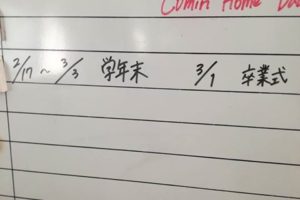 Cumin Home
2/17～3/3 学年末 3/1 卒業式